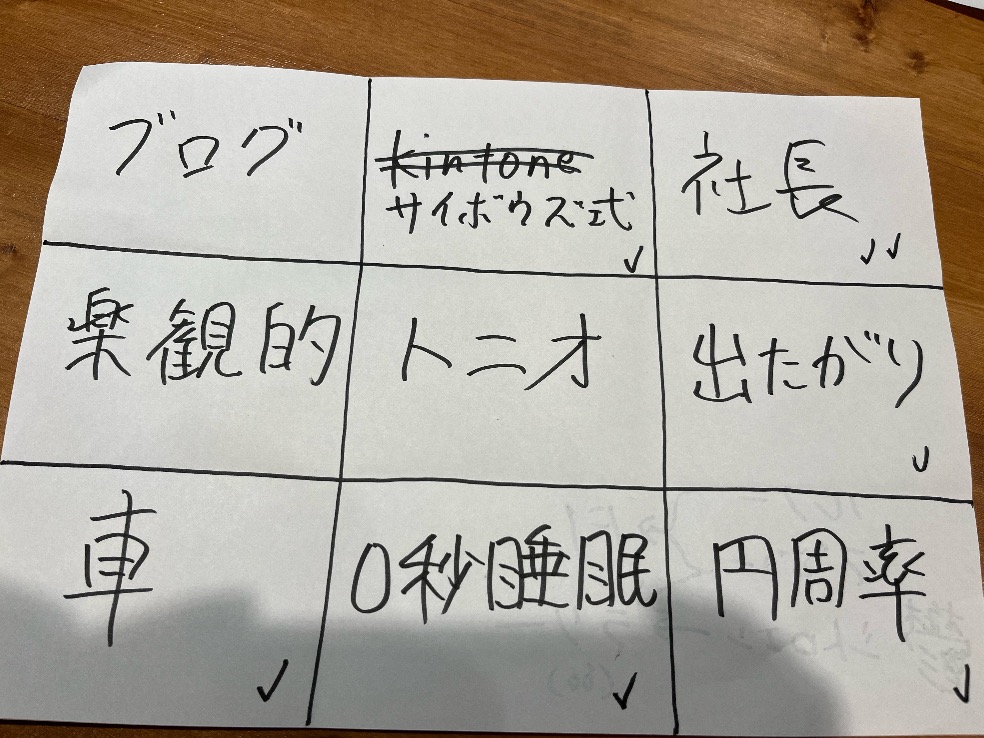 ブログ
kintone
サイボウズ式
✓
社長
✓✓
楽観的
トニオ
出たがり
✓
車
✓
0秒睡眠
✓
円周率
✓